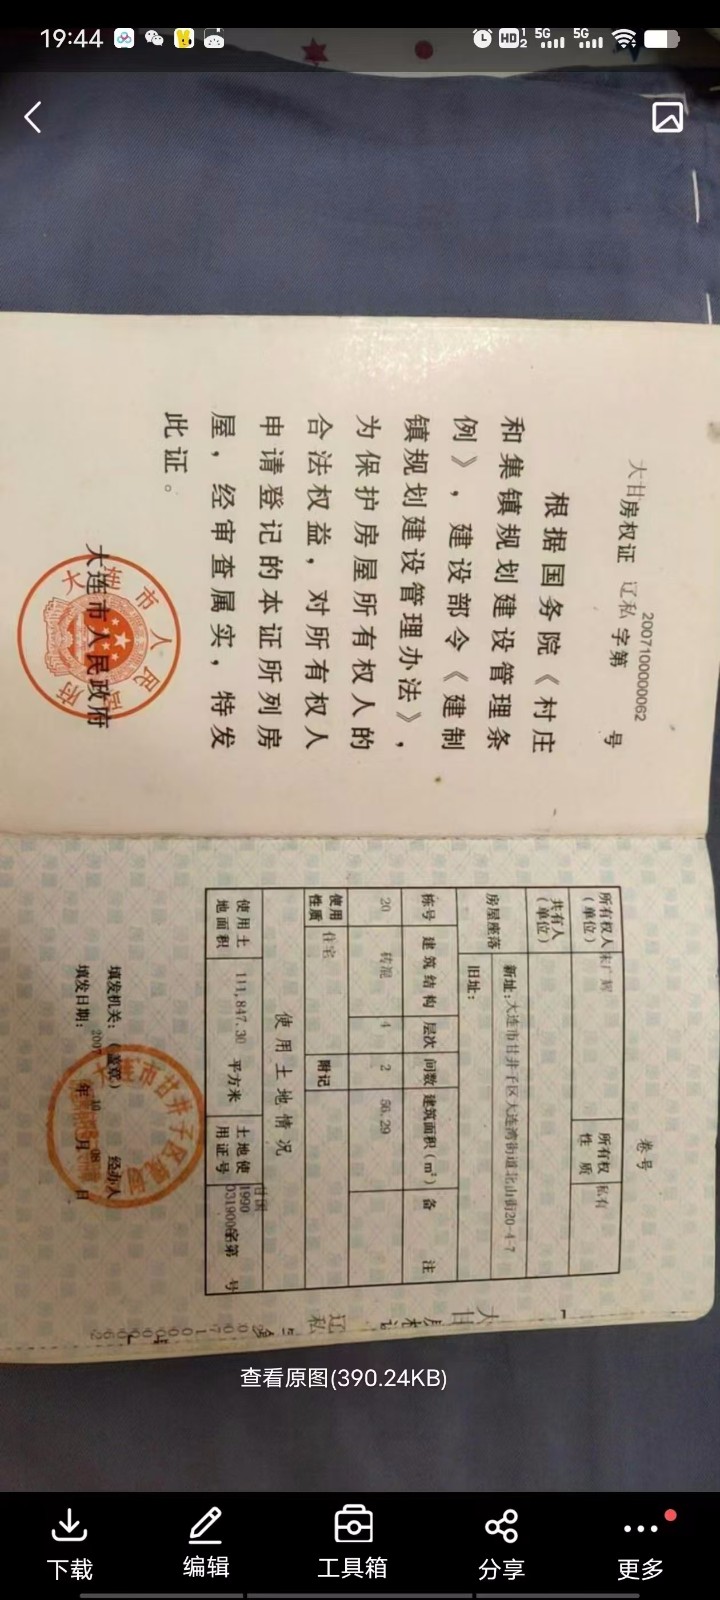 19:44
大甘房权证 辽私 字第 2007100000062 号
根据国务院《村庄
和集镇规划建设管理条
例》，建设部令《建制
镇规划建设管理办法》，
为保护房屋所有权人的
合法权益，对所有权人
申请登记的本证所列房
屋，经审查属实，特发
此证。
大连市人民政府
大连市人民政府
卷号
所有权人（单位） 宋广辉 所有权性质 私有
共有人（单位）
房屋座落 新址：大连市甘井子区大连湾街道北山街20-4-7
旧址：
栋号 建筑结构 层次 间数 建筑面积（m²） 备注
20 砖混 4 2 56.29
使用性质 住宅 附记
使用土地情况
使用土地面积 111,847.30 平方米 土地使用证号 甘国 1990 字第 号
填发机关：（盖章） 经办人
填发日期：2007 年 10 月 08 日
大连市甘井子区
查看原图(390.24KB)
下载 编辑 工具箱 分享 更多